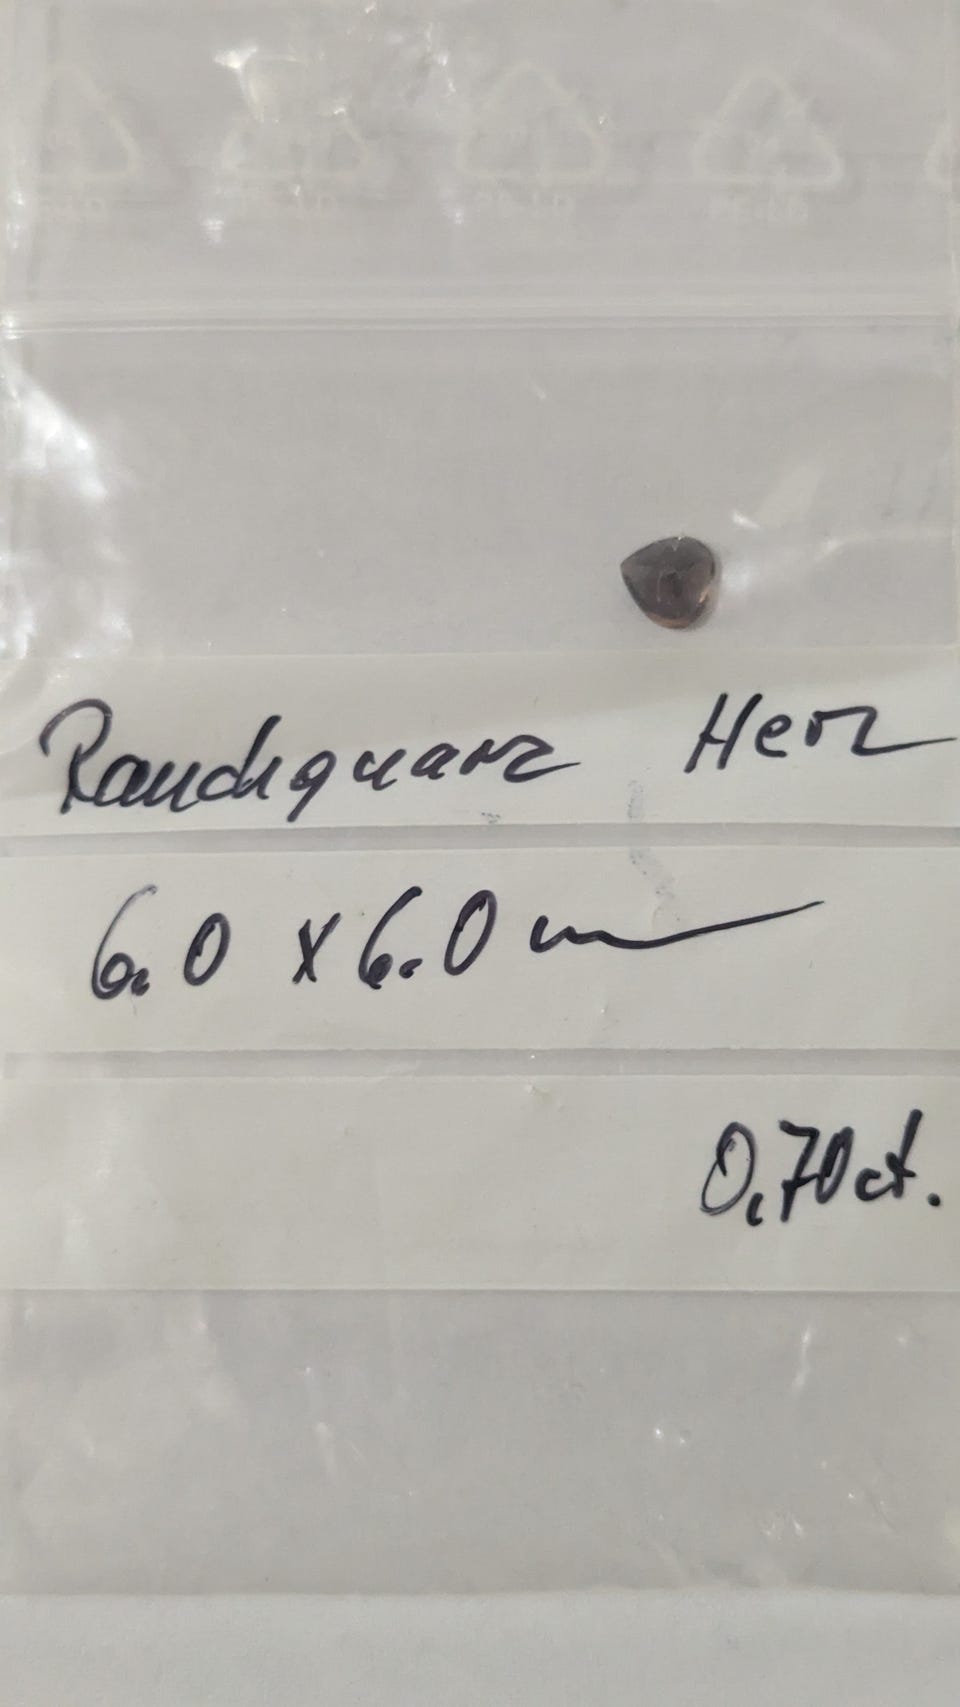 Rauchquarz Herz
6.0 x 6.0 m
0,70ct.